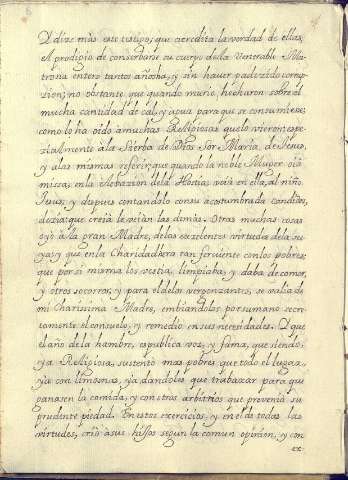 Y dize más este testigo; que acredita la verdad de ellas,
el prodigio de conservarse su cuerpo de la Venerable Ma-
trona entero tantos años ha, y sin haver padezido corrup-
zion; no obstante que quando murio, hecharon sobre el
mucha cantidad de cal, y agua para que se consumiese;
como lo ha oido a muchas Religiosas que lo vieron; espe-
zialmente a la Sierba de Dios Sor Maria de Jesus,
y a las mismas referir; que quando la noble Muger oia
missa, en la elebazion de la Hostia, veia en ella, al niño
Jesus, y despues contandolo con su acostumbrada candidez,
dezia; que creia le veian las demás. Otras muchas cosas
oyó a la gran Madre, de las excelentes virtudes de la su-
ya; y que en la Charidad hera tan ferviente con los pobres;
que por si misma los vestia, limpiaba, y daba de comer,
y otros socorros, y para el de los vergonzantes, se valia de
mi Charissima Madre, embiandoles por su mano secre-
tamente el consuelo, y remedio en sus necesidades. Y que
el año de la hambre, es publica voz, y fama, que siendo
ya Religiosa, sustentó mas pobres que todo el lugar,
ya con limosnas, ya dandoles que trabaxar para que
ganasen la comida, y con otros arbitrios que prevenia su
prudente piedad. En estos exercicios, y en el de todas las
virtudes, crió a sus hijos segun la comun opinion, y con
ex-